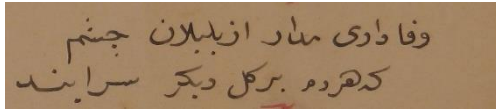 وفا داری مدار از بلبلان چشم
که هر دم بر کل دیکر سرایند